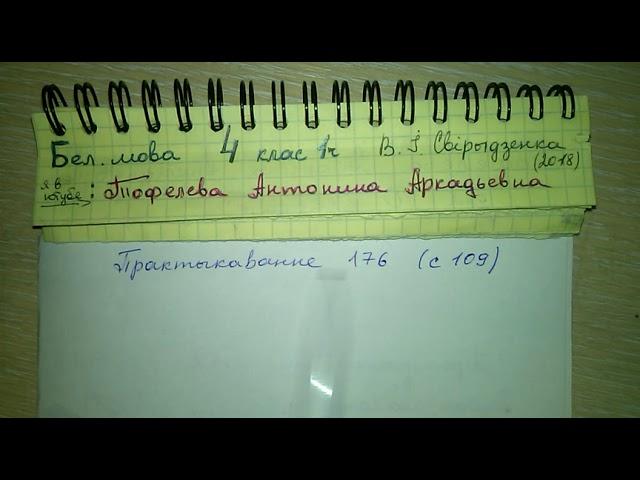 Бел. мова 4 клас 1ч В. І. Свірыдзенка
(2018)
я в ютубе : Тофелева Антонина Аркадьевна
Практыкаванне 176 (с 109)